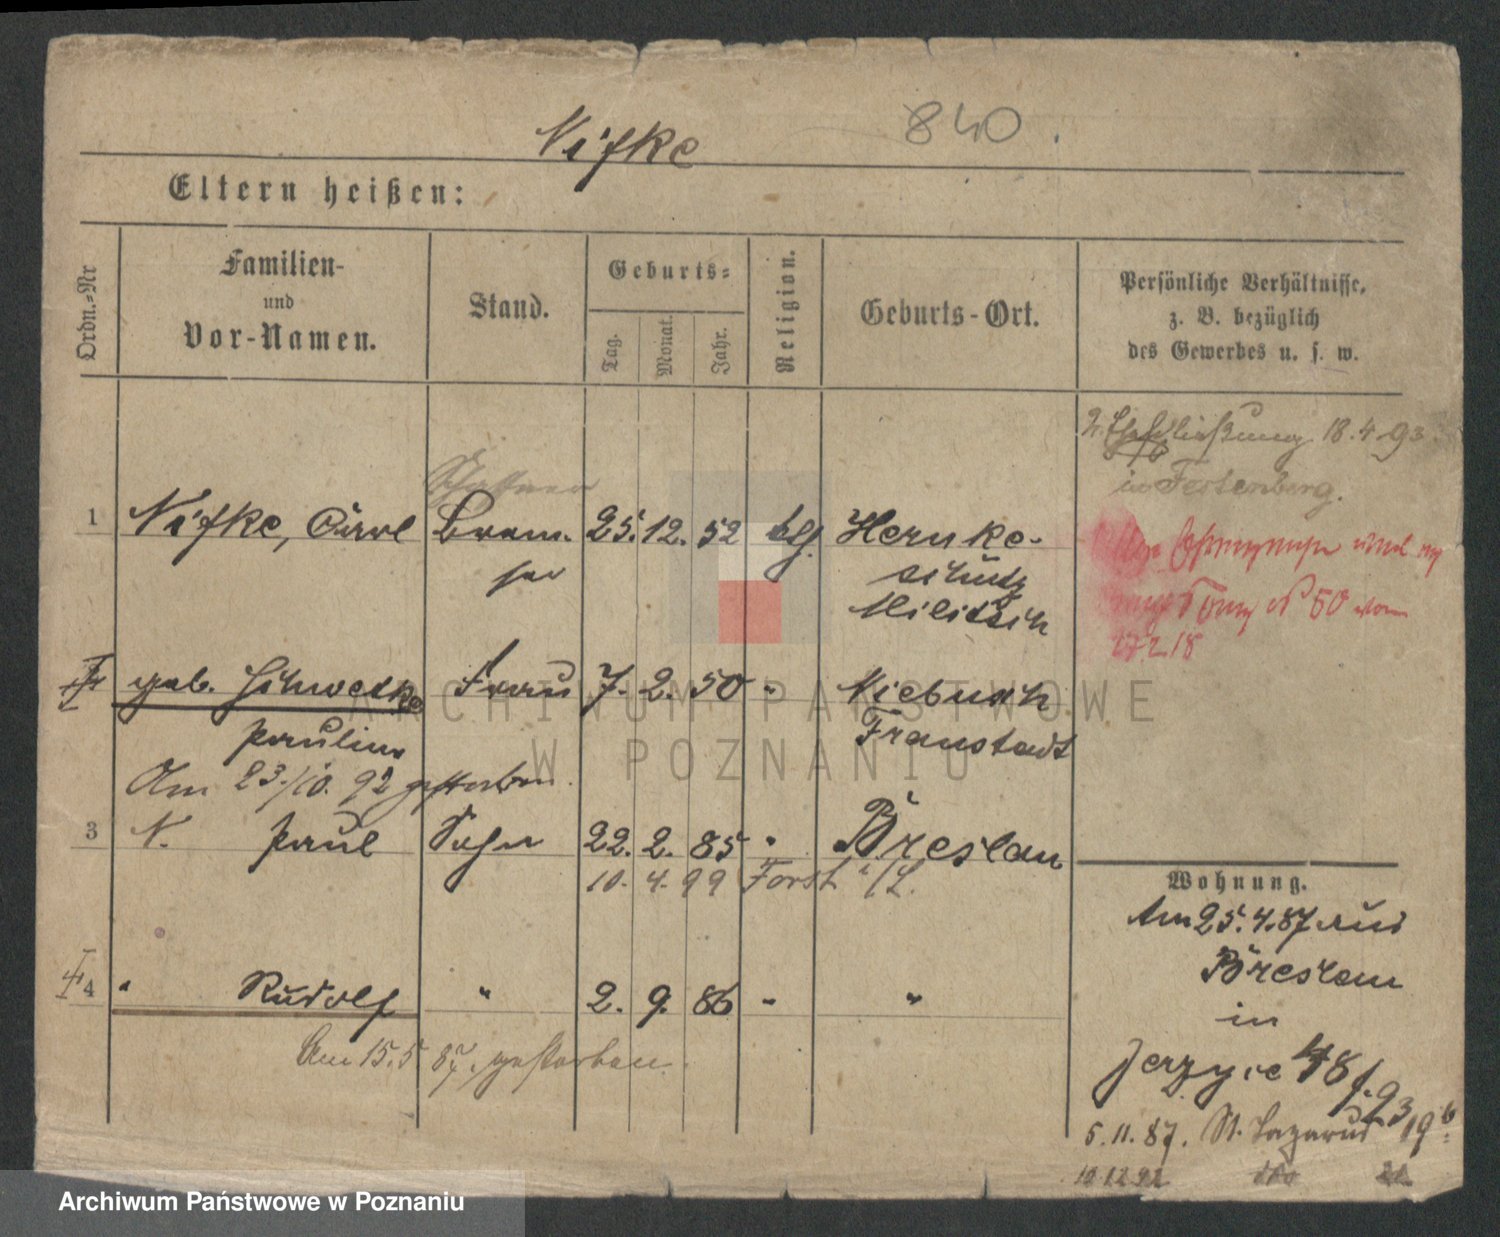 Nifke 840.
Eltern heißen:
Ordn.=Nr
Familien-
und
Vor-Namen.
Stand.
Geburts=
Tag.
Monat.
Jahr.
Religion.
Geburts-Ort.
Persönliche Verhältnisse,
z. B. bezüglich
des Gewerbes u. s. w.
2. Eheschließung 18.4.93.
in Festenberg.
Schaffner
1 Nifke, Carl Brem- 25. 12. 52 Hernke-
ser schütz
Militsch
No 50 vom
geb. Frau 7. 2. 50 " Niebusch
Pauline Fraustadt
Am 23./10. 92 gestorben.
3 N. Paul Sohn 22. 2. 85 " Breslau
10. 4. 99 Forst i/L.
4 " Rudolf " 2. 9. 86 " "
Am 15.5 87. gestorben.
Wohnung.
Am 25.4.87 aus
Breslau
in
Jerzyce 48
5.11.87. St. Lazarus 19b
10.12.92
ARCHIWUM PAŃSTWOWE
W POZNANIU
Archiwum Państwowe w Poznaniu